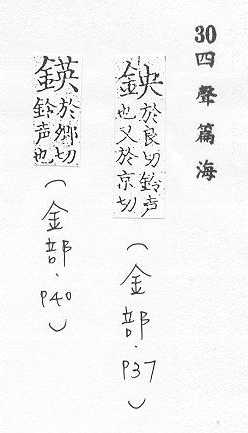 30四聲篇海
鉠於良切鈴声也又於京切(金部.P37)
鍈於鄉切鈴声也(金部.P40)